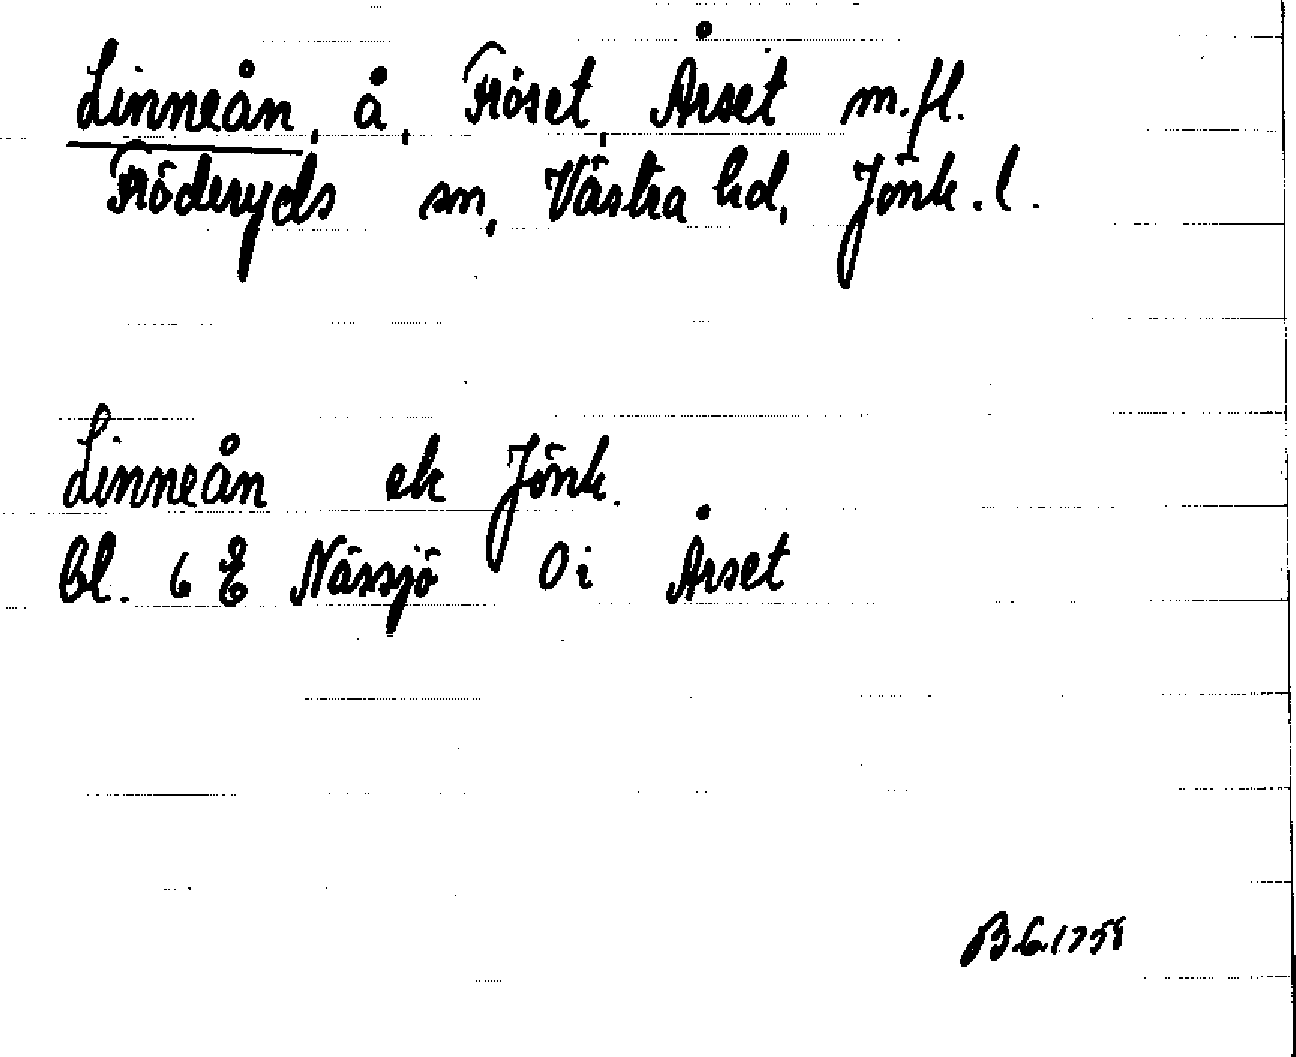 Linneån, å, Fröset, Årset m.fl.
Fröderyds sn, Västra hd, Jönk.l.
Linneån ek Jönk.
Bl. 6 E Nässjö 0 i Årset